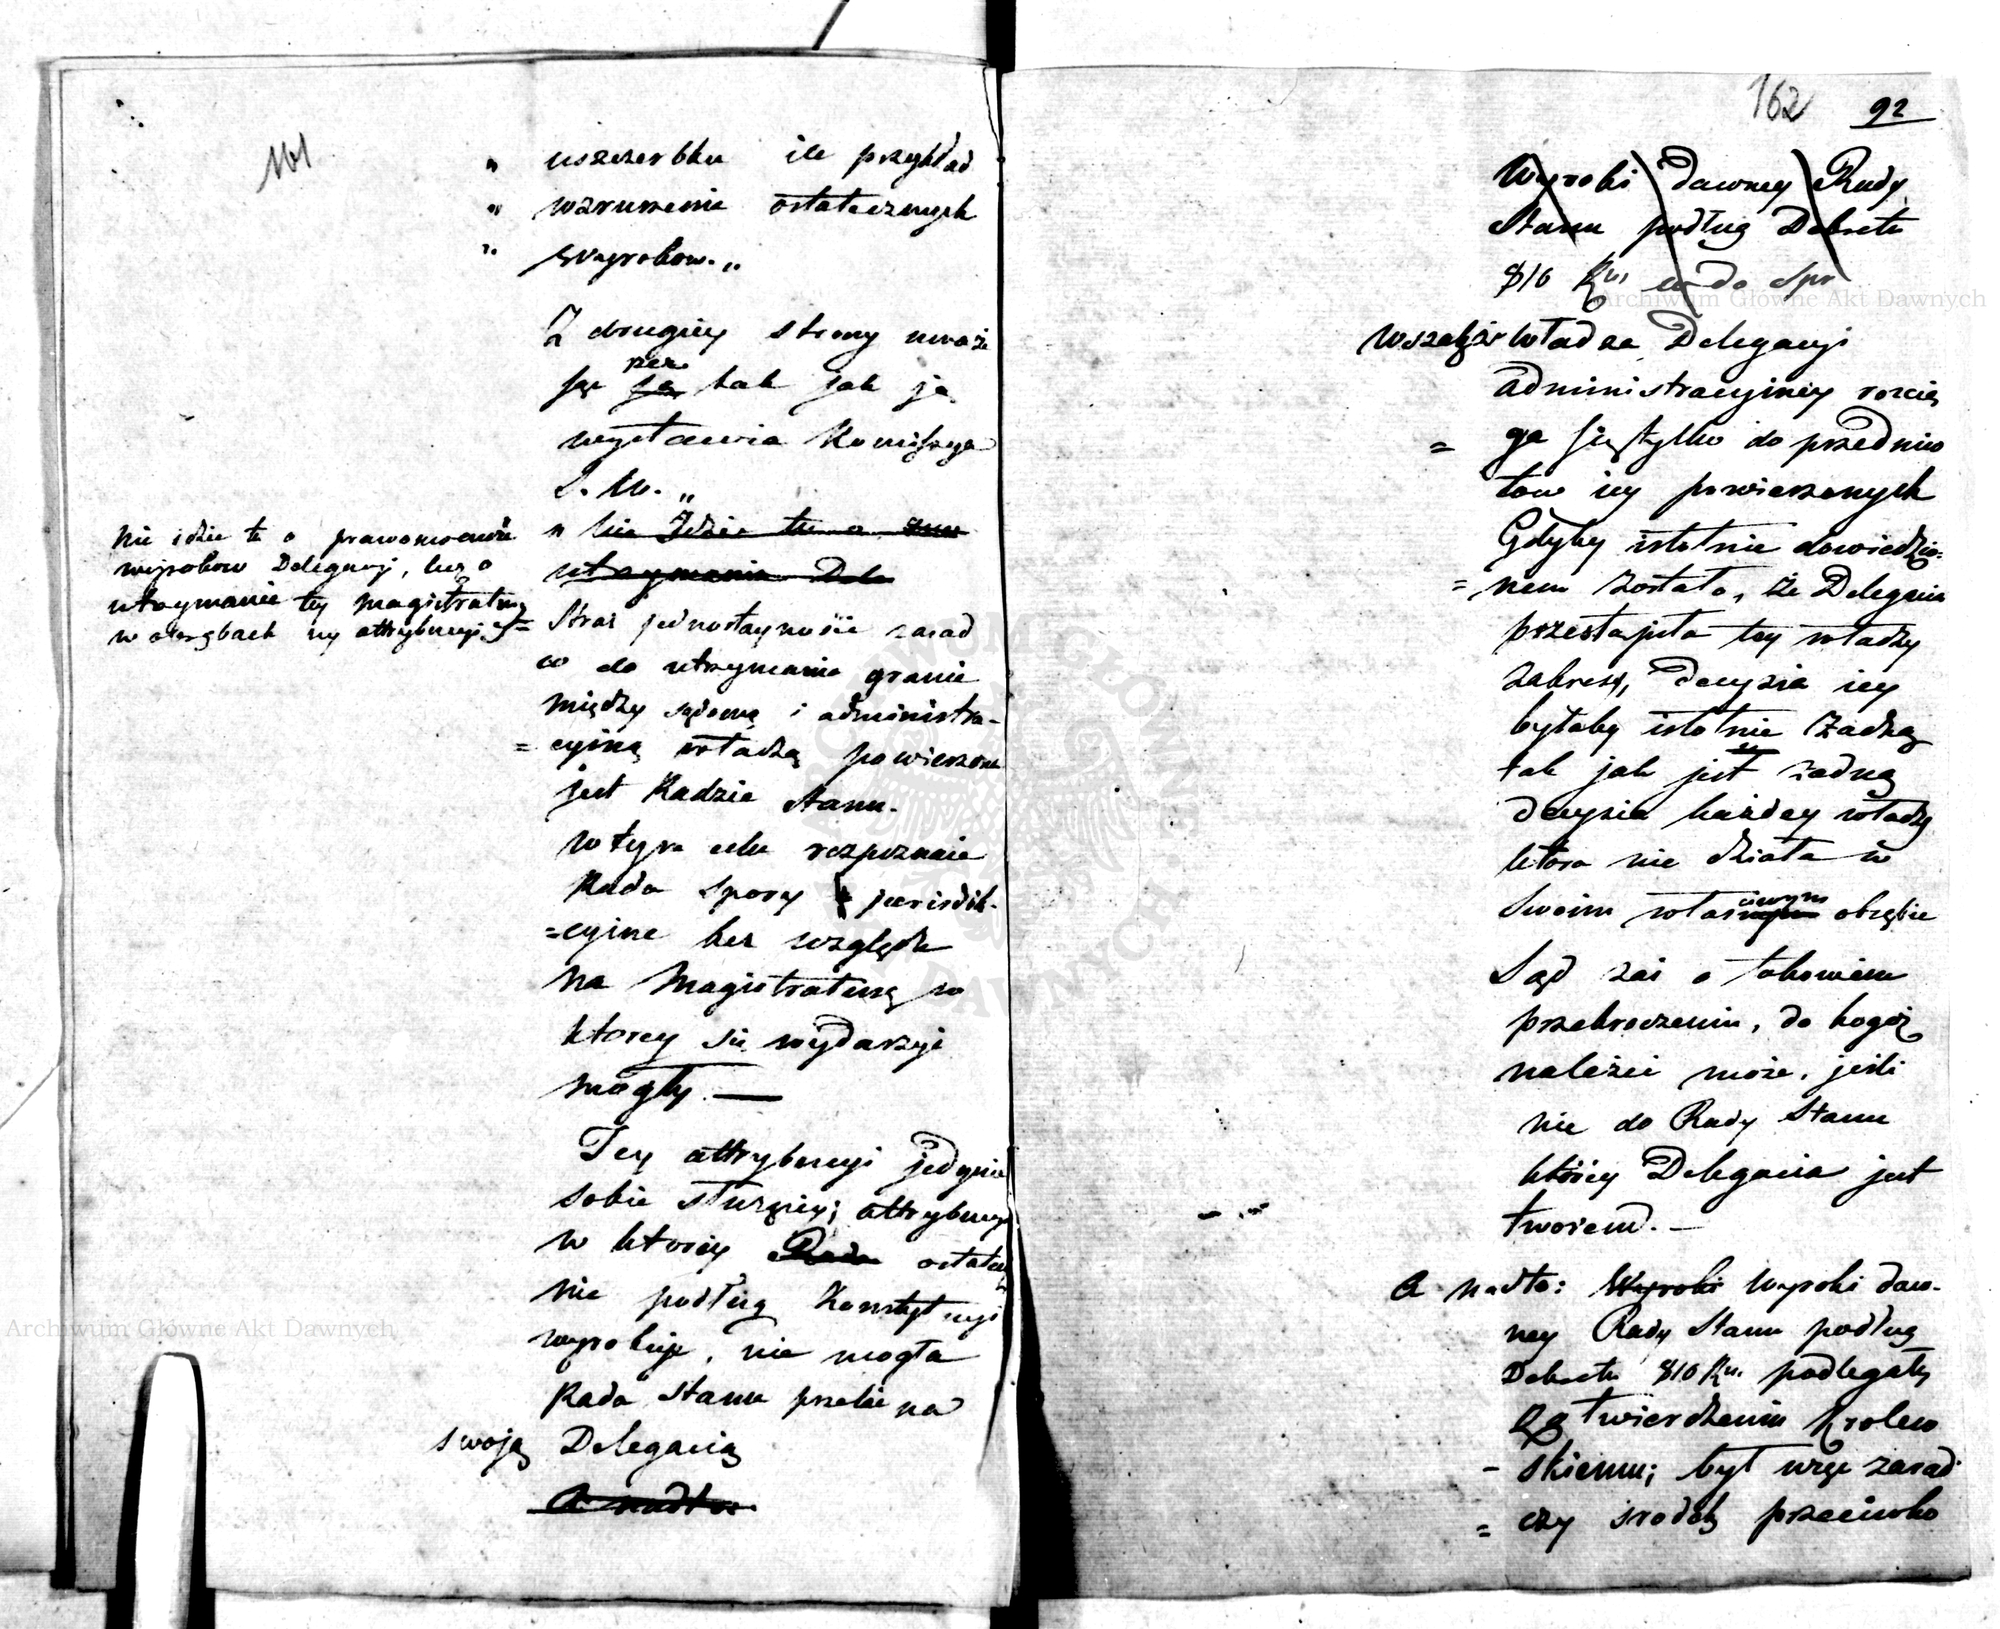 161
„ uszczerbku ile przykład
„ wzruszenie ostatecznych
„ wyrokow.„
Z drugiey strony uważa
się rzecz tak jak ją
wystawia Kommissya
S. W. „
„ Nie Idzie tu o
utrzymanie Dele
Nie idzie tu o prawomocność
wyrokow Delegacyi, lecz o
utrzymanie tey magistratury
w obrębach iey attrybucyi
Straż jednostayności zasad
co do utrzymania granic
między sądową i administra-
=cyiną władzą powierzona
jest Radzie Stanu.
w tym celu rozpoznaie
Rada spory jurisdik-
=cyine bez względu
na Magistraturę w
ktorey się wydarzyć
mogły. —
Tey attrybucyi jedynie
sobie służącey; attrybucyi
w ktorey Rada ostatecz
nie podług Konstytucyi
wyrokuje, nie mogła
Rada Stanu przelać na
swoją Delegacią
A nadto:
162 92
Wyroki dawney Rady
Stanu podług Dekretu
810 Ru. co do Spr
Wszakże władza Delegacyi
administracyiney rozcią
= ga się tylko do przedmio
tow iey powierzonych
Gdyby istotnie dowiedzio=
= nem zostało, że Delegacia
przestąpiła tey władzy
zakres, decyzia iey
byłaby istotnie żadną
tak jak jest żadną
decyzia każdey władzy
ktora nie działa w
swoim właściwym obrębie
Sąd zaś o takowem
przekroczeniu, do kogoż
należeć może, jeśli
nie do Rady Stanu
ktorey Delegacia jest
tworem. —
A nadto: Wyroki Wyroki daw-
ney Rady Stanu podług
Dekretu 810 Ru. podlegały
zatwierdzeniu Krolew
- skiemu; był więc zarad
= czy srodek przeciwko